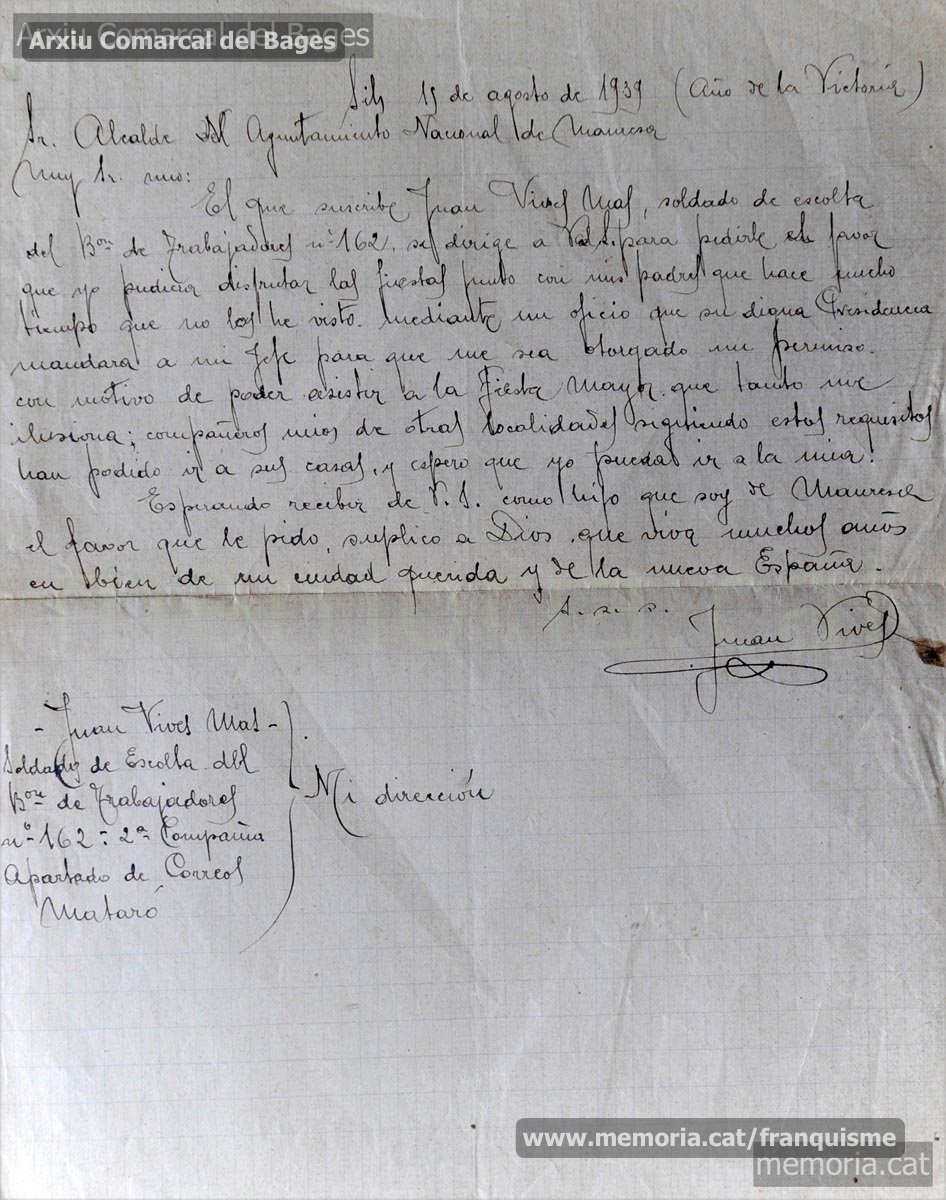 Arxiu Comarcal del Bages
Arxiu Comarcal del Bages
Sils 15 de agosto de 1939 (Año de la Victoria)
Sr. Alcalde del Aguntamiento Nacional de Manresa
Muy Sr. mio:
El que suscribe Juan Vives Mas, soldado de escolta
del Bon de Trabajadores nº 162, se dirige a Vd. para pedirle el favor
que yo pudiera disfrutar las fiestas junto con mis padres que hace mucho
tiempo que no los he visto. mediante un oficio que su digna Presidencia
mandara a mi Jefe para que me sea otorgado un permiso.
con motivo de poder asistir a la Fiesta Mayor que tanto me
ilusiona; compañeros mios de otras localidades siguiendo estos requisitos
han podido ir a sus casas, y espero que yo pueda ir a la mia.
Esperando recibir de V.S. como hijo que soy de Manresa
el favor que le pido, suplico a Dios que viva muchos años
en bién de mi ciudad querida y de la nueva España.
s. s. s.
Juan Vives
- Juan Vives Mas -
Soldado de Escolta del
Bon de Trabajadores
nº 162 - 2ª Compañia
Apartado de Correos
Mataró
Mi dirección
www.memoria.cat/franquisme
memoria.cat